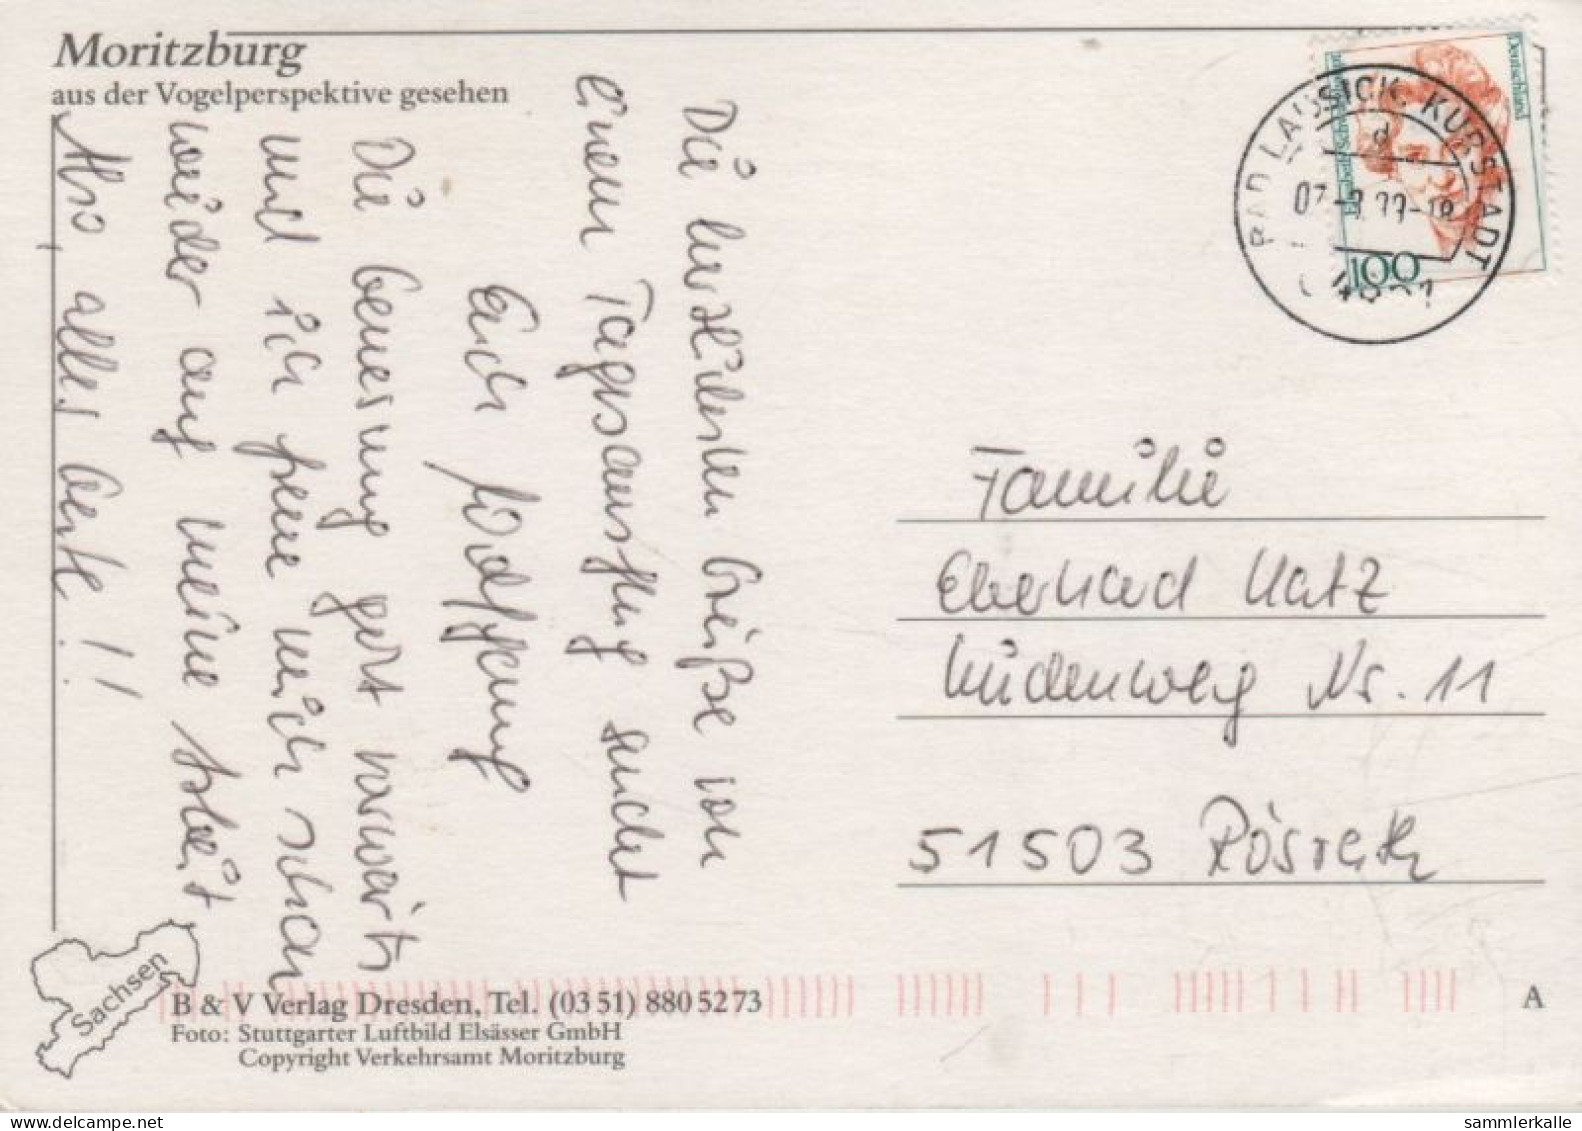 Moritzburg
aus der Vogelperspektive gesehen
Die herzlichsten Grüße von
einem Tagesausflug sendet
Euch
Die Genesung geht vorwärts
und ich freue mich schon
wieder auf meine Arbeit
Also, alles Gute!!
Deutschland
100
BAD LAUSICK, KURSTADT
d
Familie
Eberhard Katz
Nr. 11
51503 Rösrath
Sachsen
B & V Verlag Dresden, Tel. (03 51) 880 52 73
Foto: Stuttgarter Luftbild Elsässer GmbH
Copyright Verkehrsamt Moritzburg
A
sammlerkalle